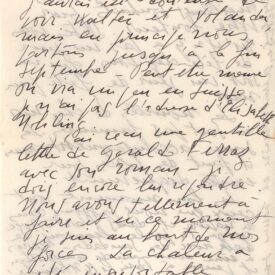 voir Walter et Yolanda,
mais en principe nous
partons jusqu'à la fin
septembre. Peut être même
on ira un peu en Suisse
je n'ai pas l'adresse d'Elisabeth
J'ai reçu une gentille
lettre de Gerald
avec son roman - je
dois encore lui répondre.
Nous avons tellement à
faire et en ce moment
je suis au bout de mes
forces. La chaleur a